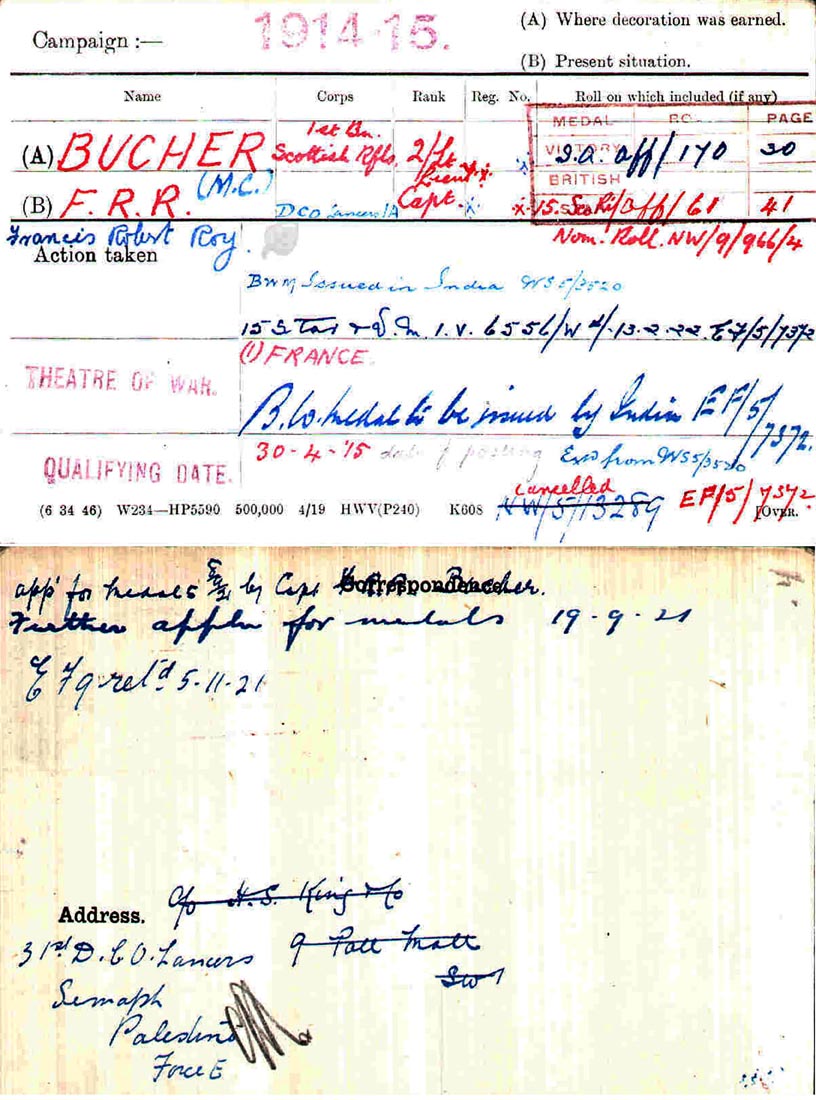 Campaign :— 1914-15. (A) Where decoration was earned.
(B) Present situation.
Name Corps Rank Reg. No. Roll on which included (if any)
MEDAL RO. PAGE
(A) BUCHER 1st Bn. Scottish Rfls 2/Lt VICTORY I.A. Off/170 30
Lieut. x. x BRITISH
(B) F. R. R. (M.C.) DCO Lancers IA Capt. x x 15. Sco Rif Off/61 41
Francis Robert Roy. Nom. Roll. NW/9/966/4
Action taken
BWM Issued in India WS5/3520
15 Star & V.M. I.V. 6556/W d/-13-2-22. EF/5/7372
(1) FRANCE.
THEATRE OF WAR.
B.W. medal to be issued by India EF/5/7372.
30-4-'15 date of posting Exd from WS5/3520
QUALIFYING DATE.
Cancelled
(6 34 46) W234—HP5590 500,000 4/19 HWV(P240) K608 NW/5/13289 EF/5/7372 [OVER.
Correspondence.
app for medals by Capt Bucher.
Further appln for medals 19-9-21
ret'd 5-11-21
Address. c/o H.S. King & Co
31st D.C.O. Lancers 9 Pall Mall
SW1
Semaph
Palestine
Force E